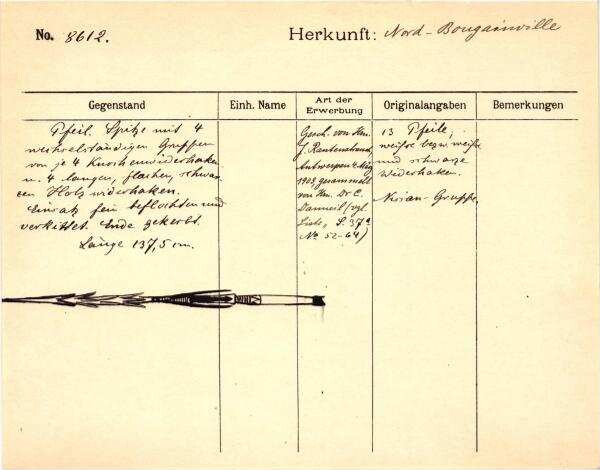 No. 8612.
Herkunft: Nord-Bougainville
Gegenstand
Einh. Name
Art der Erwerbung
Originalangaben
Bemerkungen
Pfeil. Spitze mit 4
wechselständigen Gruppen
von je 4 Knochenwiderhaken
u. 4 langen, flachen, schwar-
zen Holzwiderhaken.
Einsatz fein beflochten und
verkittet. Ende gekerbt.
Länge 137,5 cm.
Gesch. von Hrn.
J. Rautenstrauch,
Antwerpen
1909, gesammelt
von Hrn. Dr. E.
Danneil (vgl.
Liste, S. 37a
No 52-64)
13 Pfeile,
weisse bezw. weisse
und schwarze
Widerhaken.
Gruppe.